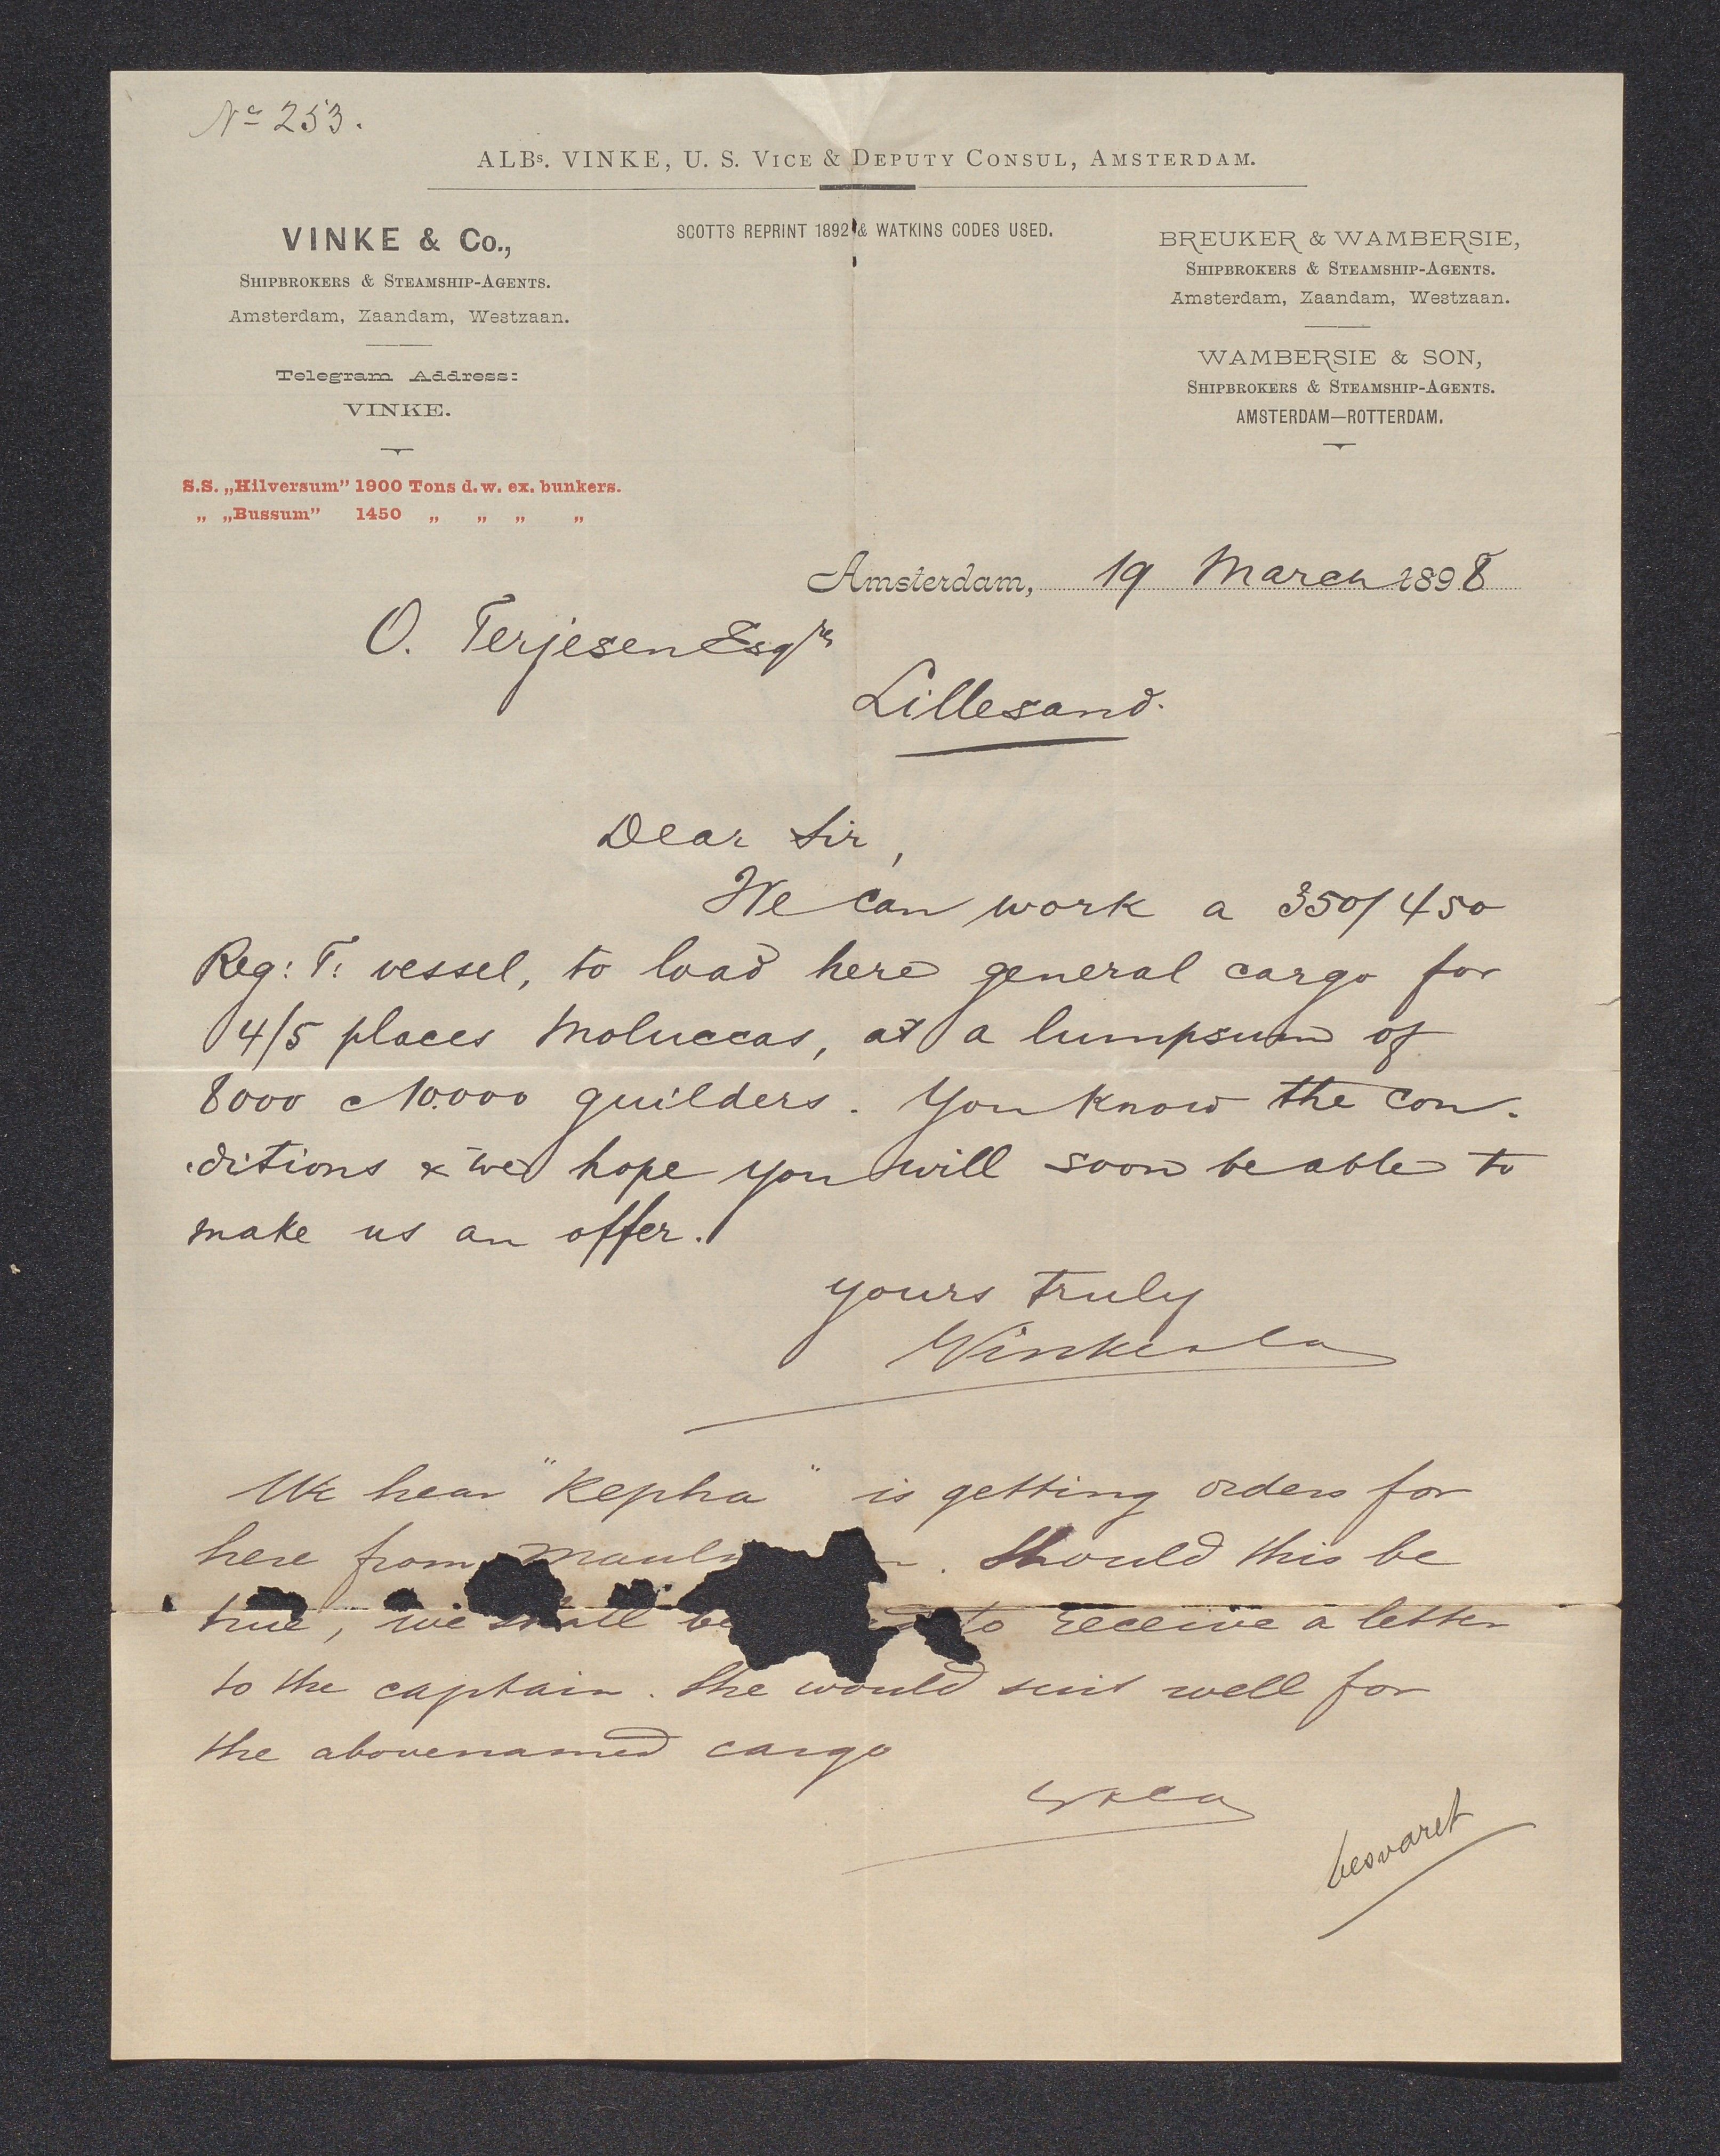 No 253.
ALBs. VINKE, U. S. VICE & DEPUTY CONSUL, AMSTERDAM.
VINKE & Co.,
SHIPBROKERS & STEAMSHIP-AGENTS.
Amsterdam, Zaandam, Westzaan.
Telegram Address:
VINKE.
S.S. „Hilversum” 1900 Tons d.w. ex. bunkers.
„ „Bussum” 1450 „ „ „ „
SCOTTS REPRINT 1892 & WATKINS CODES USED.
BREUKER & WAMBERSIE,
SHIPBROKERS & STEAMSHIP-AGENTS.
Amsterdam, Zaandam, Westzaan.
WAMBERSIE & SON,
SHIPBROKERS & STEAMSHIP-AGENTS.
AMSTERDAM—ROTTERDAM.
Amsterdam, 19 March 1898
O. Terjesen Esqre
Lillesand.
Dear Sir,
We can work a 350/450
Reg: T: vessel, to load here general cargo for
4/5 places Moluccas, at a lumpsum of
8000 a 10.000 guilders. You know the con-
ditions & we hope you will soon be able to
make us an offer.
yours truly
Vinke & Co
We hear "Kepha" is getting orders for
here from. Should this be
true, we shall be to receive a letter
to the captain. She would suit well for
the abovenamed cargo
besvaret